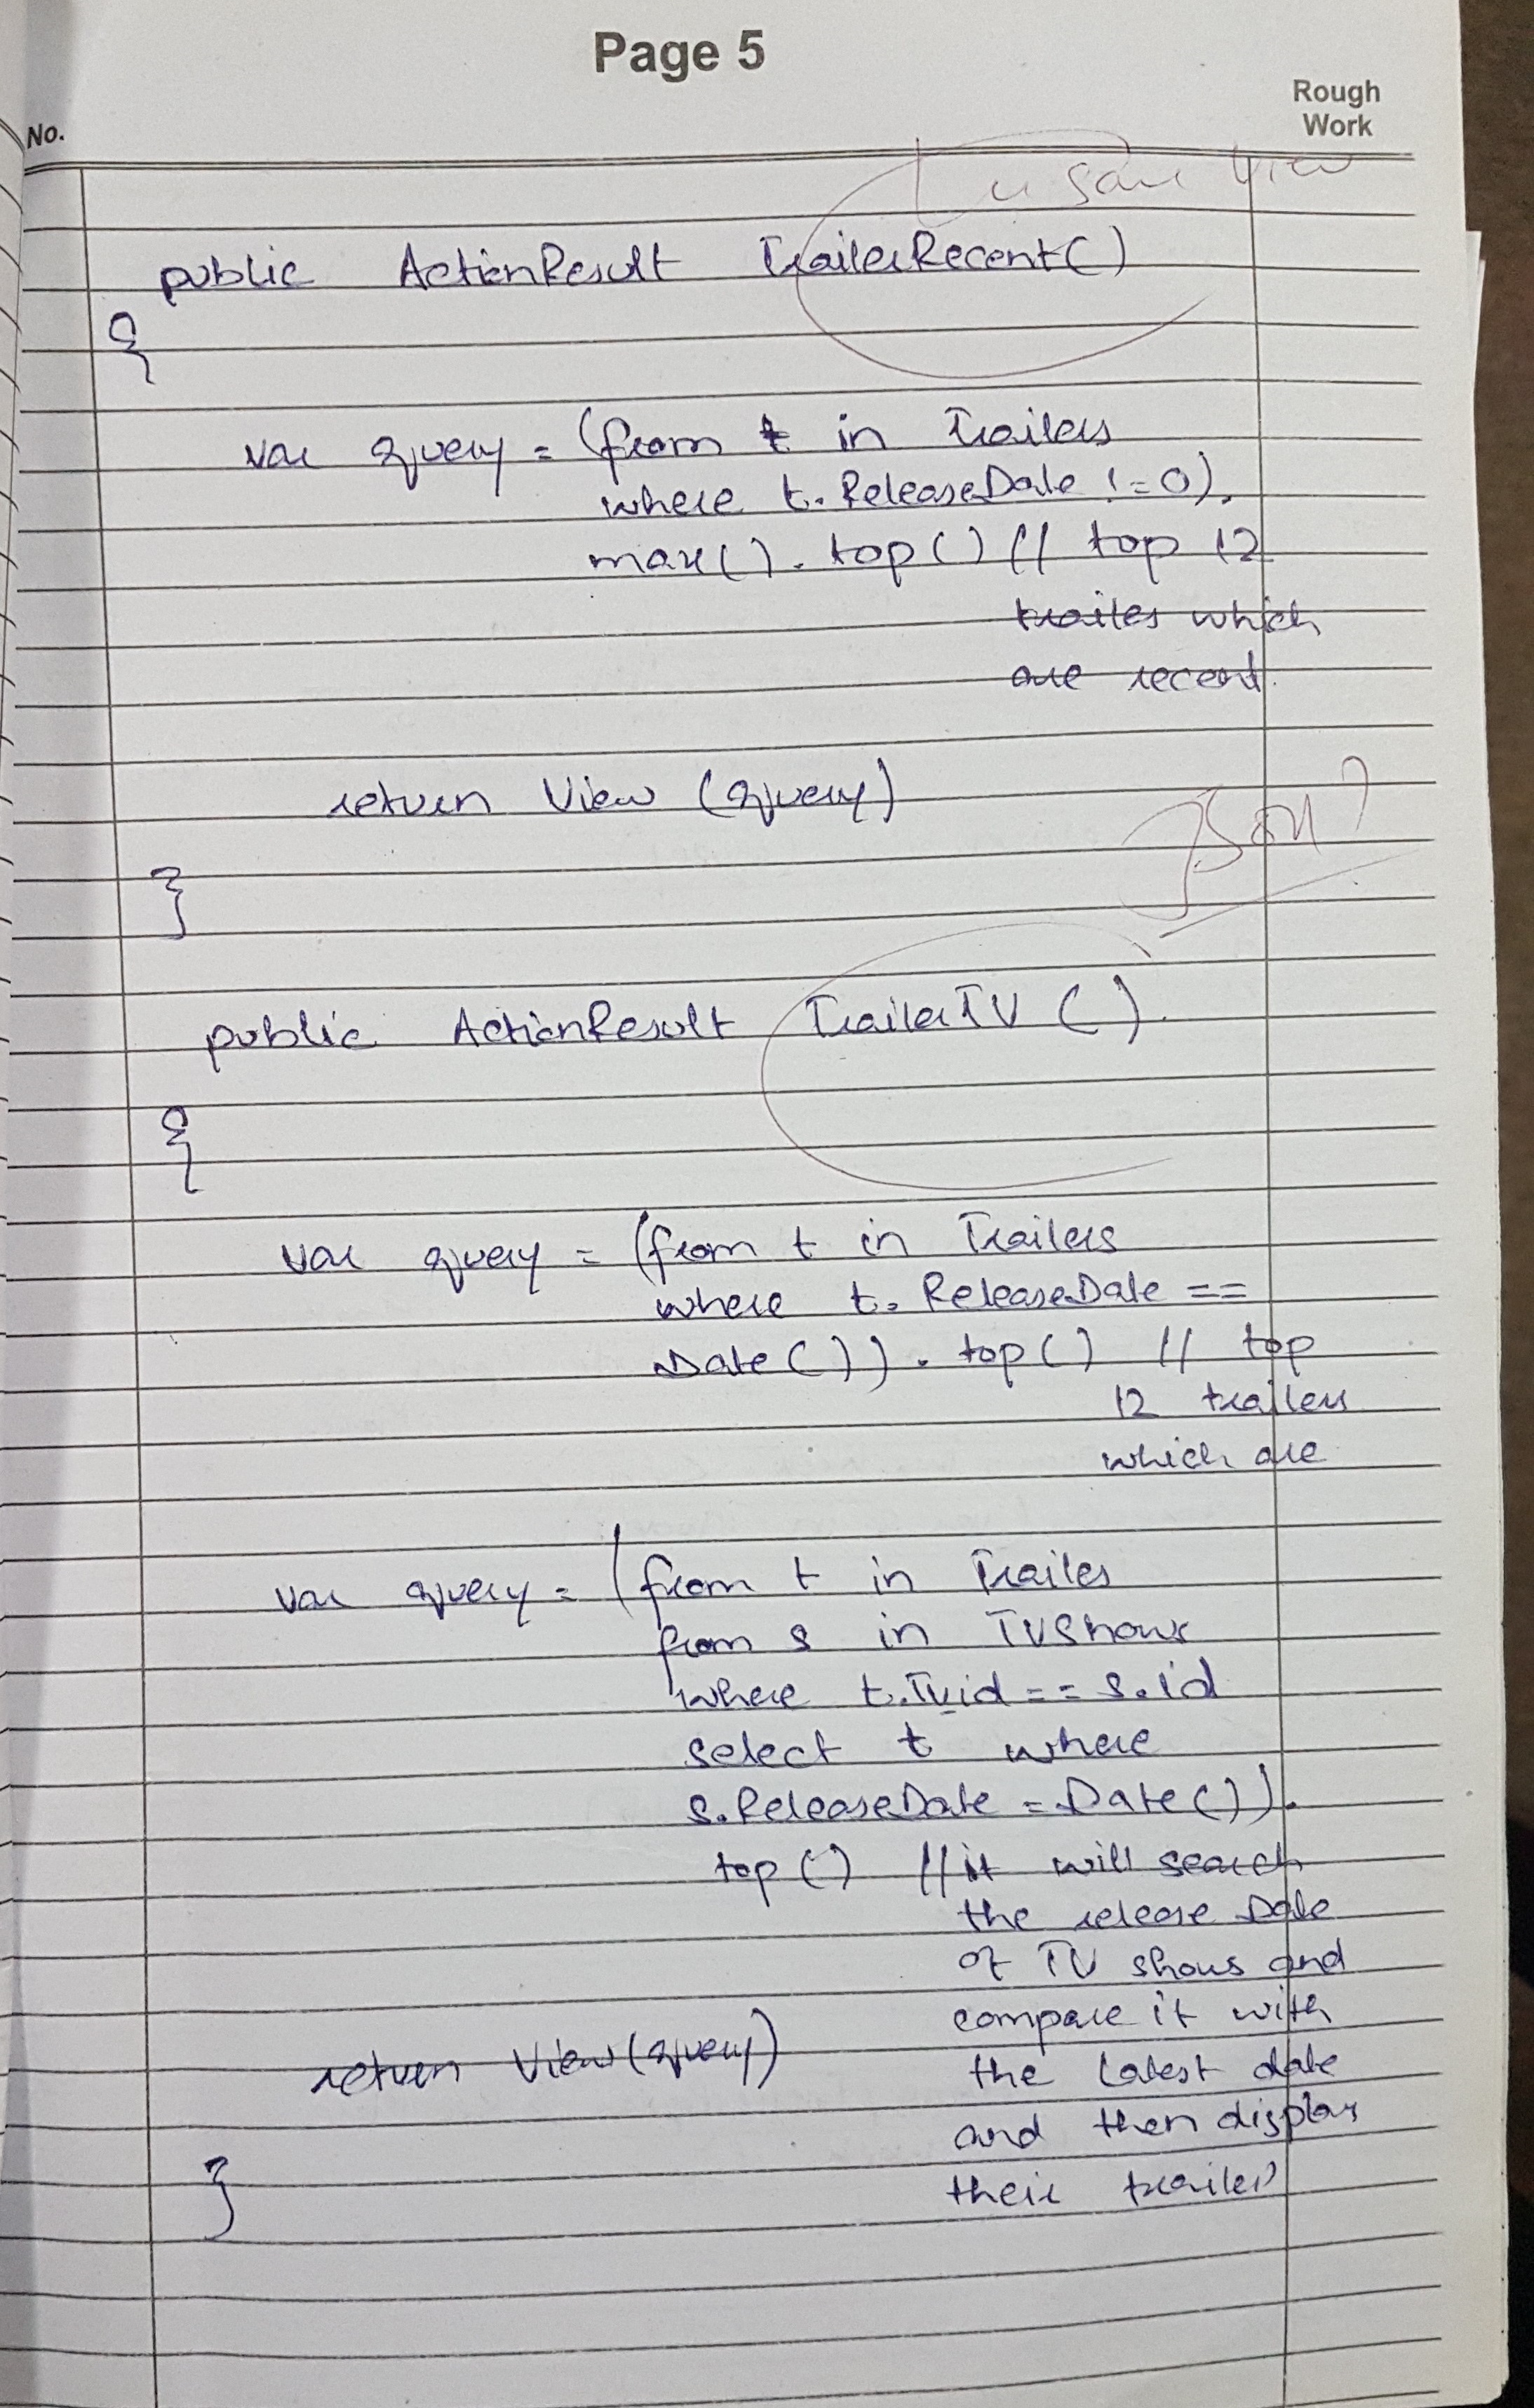 Page 5
No.
Rough
Work
same view
public ActionResult TrailerRecent()
{
var query = (from t in Trailers
where t.ReleaseDate != 0).
max().top() // top 12
trailes which
are recent.
return View (query)
}
JSON?
public ActionResult TrailerTV ( )
{
var query = (from t in Trailers
where t.ReleaseDate ==
Date()).top() // top
12 trailers
which are
var query = (from t in Trailes
from s in TVShows
where t.Tvid == s.id
select t where
s.ReleaseDate = Date()).
top() // it will search
the release Date
of TV shows and
compare it with
the latest date
and then display
their trailer
return View(query)
}